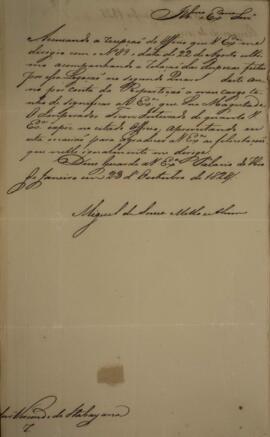 Illmo e Exmo Senr
Accusando a recepção do Officio que V. Exa me
dirigio com o Nº 82 data de 22 de Agosto ulti
mo acompanhando a relação das despezas feitas
por essa Legação no segundo deste an
no por conta da Repartição a meu cargo te
nho de significar a V. Exa que Sua Magestade
O Imperador ficou inteirado de quanto V.
Exa expoz no citado Officio, aproveitando eu
esta occasião para agradecer a V. Exa as felicitações
que nelle igualmente me dirige.
Deos Guarde a V. Exa Palacio do Rio
de Janeiro em 23 d'Outubro de 1829
Miguel de Souza Mello e Alvim
Senr Visconde de Itabayana